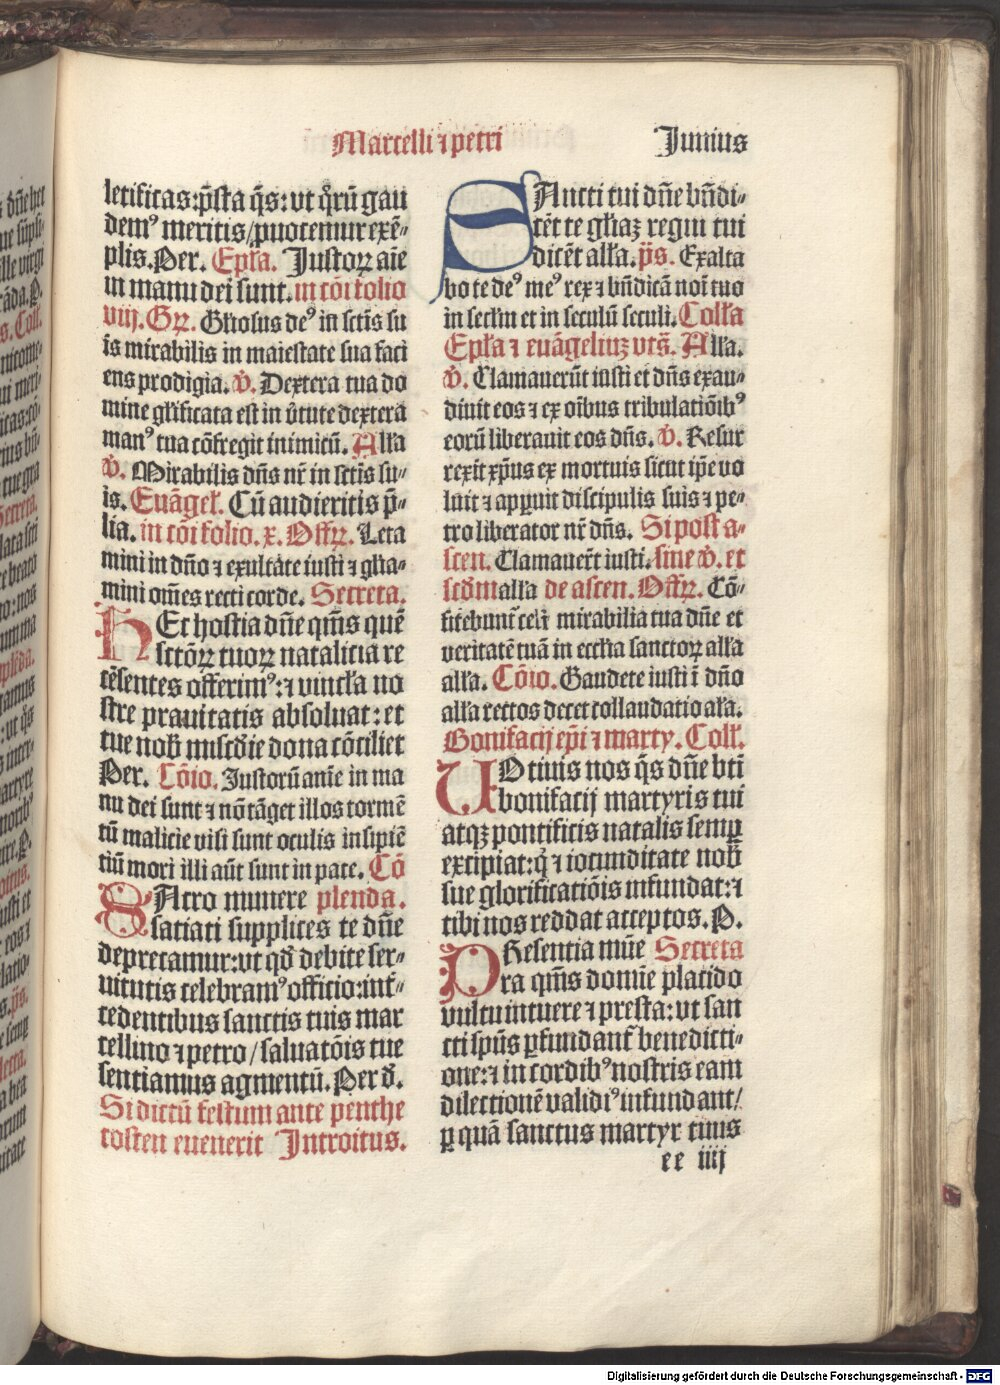 Marcelli ⁊ petri
Junius
letificas: p̄sta q̄s: vt q̊rū gau
dem⁹ meritis/ ꝓuocemur exē⸗
plis. Per. Ep̄ła. Justoꝝ aīe
in manu dei sunt. in cōi folio
viij. Gꝝ. Gl̄iosus de⁹ in sctīs su
is mirabilis in maiestate sua faci
ens prodigia. v̄. Dextera tua do
mine gl̄ificata est in v̄tute dextera
man⁹ tua cōfregit inimicū. Ałła
v̄. Mirabilis dn̄s nr̄ in sctīs su⸗
is. Euāgeł. Cū audieritis p̄⸗
lia. in cōi folio. x. Offꝝ. Leta
mini in dn̄o ⁊ exultate iusti ⁊ gl̄ia⸗
mini om̄es recti corde. Secreta.
HEc hostia dn̄e qm̄s quē
sctōꝝ tuoꝝ natalicia re
cēsentes offerim⁹: ⁊ vincła no
stre prauitatis absoluat: et
tue nob̄ miscd̄ie dona cōciliet
Per. Cōio. Justorū anīe in ma
nu dei sunt ⁊ nō tāget illos tormē
tū malicie visi sunt oculis insipiē
tiū mori illi aūt sunt in pace. Cō
SAcro munere plenda.
satiati supplices te dn̄e
deprecamur: vt qd̄ debite ser⸗
uitutis celebram⁹ officio: int̄⸗
cedentibus sanctis tuis mar
cellino ⁊ petro/ saluatōis tue
sentiamus agmentū. Per d̄.
Si dictū festum ante penthe
costen euenerit Introitus.
SAncti tui dn̄e bn̄di⸗
cēt te gl̄iaꝫ regni tui
dicēt ałła. p̄s. Exalta
bo te de⁹ me⁹ rex ⁊ bn̄dicā noī tuo
in secłm et in seculū seculi. Colła
Epła ⁊ euāgeliuꝫ vts̄. Ałła.
v̄. Clamauerūt iusti et dn̄s exau⸗
diuit eos ⁊ ex oībus tribulatiōib⁹
eorū liberauit eos dn̄s. v̄. Resur
rexit xp̄us ex mortuis sicut ip̄e vo
luit ⁊ apꝑuit discipulis suis ⁊ pe⸗
tro liberator nr̄ dn̄s. Si post a⸗
scen. Clamauer̄t iusti. sine v̄. et
scd̄m ałła de ascen. Offꝝ. Cō⸗
fitebunt̄ celi mirabilia tua dn̄e et
veritatē tuā in eccłia sanctoꝝ ałła
ałła. Cōio. Gaudete iusti ī dn̄o
ałła rectos decet collaudatio ała.
Bonifacij ep̄i ⁊ marty. Coll̄.
UOtiuis nos q̄s dn̄e bt̄i
bonifacij martyris tui
atqꝫ pontificis natalis semꝑ
excipiat: q̇ ⁊ iocunditate nob̄
sue glorificatiōis infundat: ⁊
tibi nos reddat acceptos. P.
PResentia mūe Secreta
ra qm̄s domīe placido
vultu intuere ⁊ presta: vt san
cti sp̄us ꝑfundant̄ benedicti⸗
one: ⁊ in cordib⁹ nostris eam
dilectionē validi⁹ infundant/
ꝑ quā sanctus martyr tuus
ee iiij
Digitalisierung gefördert durch die Deutsche Forschungsgemeinschaft - DFG